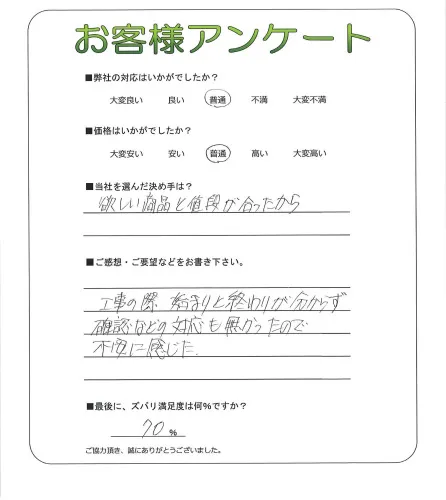 お客様アンケート
■弊社の対応はいかがでしたか?
大変良い 良い 普通 不満 大変不満
■価格はいかがでしたか?
大変安い 安い 普通 高い 大変高い
■当社を選んだ決め手は?
欲しい商品と値段が合ったから
■ご感想・ご要望などをお書き下さい。
工事の際 始まりと終わりが分からず
確認などの対応も無かったので
不安に感じた.
■最後に、ズバリ満足度は何%ですか?
70 %
ご協力頂き、誠にありがとうございました。